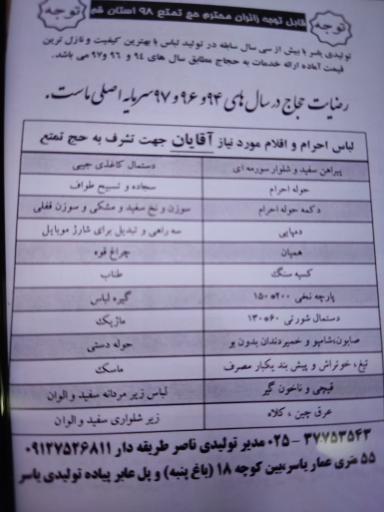 توجه
قابل توجه زائران محترم حج تمتع ۹۸ استان قم
توجه
تولیدی یاسر با بیش از سی سال سابقه در تولید لباس با بهترین کیفیت و نازل ترین
قیمت آماده ارائه خدمات به حجاج مطابق سال های ۹۴ و ۹۶ و ۹۷ می باشد.
رضایت حجاج در سال های ۹۴ و ۹۶ و ۹۷ سرمایه اصلی ماست.
لباس احرام و اقلام مورد نیاز آقایان جهت تشرف به حج تمتع
پیراهن سفید و شلوار سورمه ای
دستمال کاغذی جیبی
حوله احرام
سجاده و تسبیح طواف
دکمه حوله احرام
سوزن و نخ سفید و مشکی و سوزن قفلی
دمپایی
سه راهی و تبدیل برای شارژ موبایل
همیان
چراغ قوه
کیسه سنگ
طناب
پارچه نخی ۲۰۰*۱۵۰
گیره لباس
دستمال شورتی ۶۰*۱۳۰
ماژیک
صابون،شامپو و خمیردندان بدون بو
حوله دستی
تیغ ، خودتراش و پیش بند یکبار مصرف
ماسک
قیچی و ناخون گیر
لباس زیر مردانه سفید و الوان
عرق چین ، کلاه
زیر شلواری سفید و الوان
۳۷۷۵۳۵۴۳ - ۰۲۵ مدیر تولیدی ناصر طریقه دار ۰۹۱۲۷۵۲۶۸۱۱
۵۵ متری عمار یاسر،بین کوچه ۱۸ (باغ پنبه) و پل عابر پیاده تولیدی یاسر